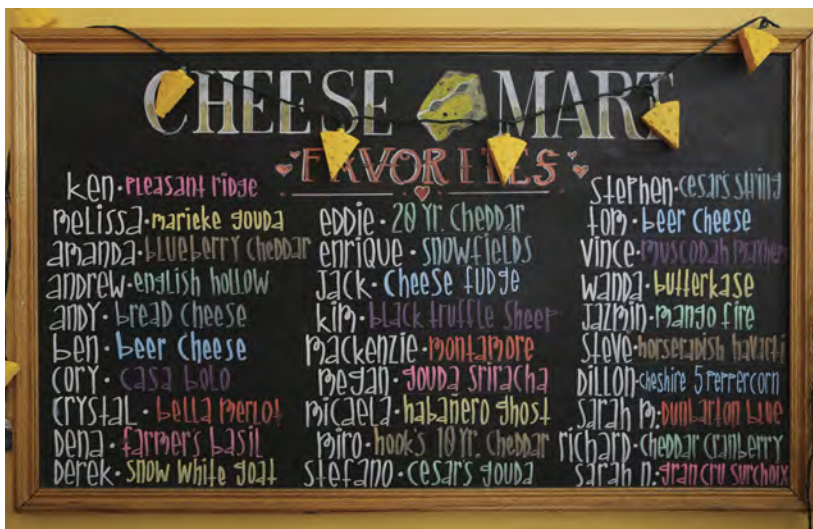 CHEESE MART
FAVORITES
ken · Pleasant ridge
melissa · marieke gouda
amanda · blueberry cheddar
andrew · english hollow
andy · bread cheese
ben · beer cheese
cory · casa bolo
crystal · bella merlot
Dena · farmer's basil
Derek · snow white goat
eddie · 20 yr. cheddar
enrique · snowfields
Jack · cheese fudge
kim · black truffle sheep
mackenzie · montamore
megan · gouda sriracha
micaela · habañero ghost
miro · hook's 10 yr. cheddar
stefano · cesar's gouda
stephen · cesar's string
tom · beer cheese
vince · muscodah
wanda · butterkase
Jazmin · mango fire
Steve · horseradish havarti
Dillon · cheshire 5 peppercorn
sarah m. · Dunbarton blue
richard · cheddar cranberry
sarah n. · gran cru surchoix